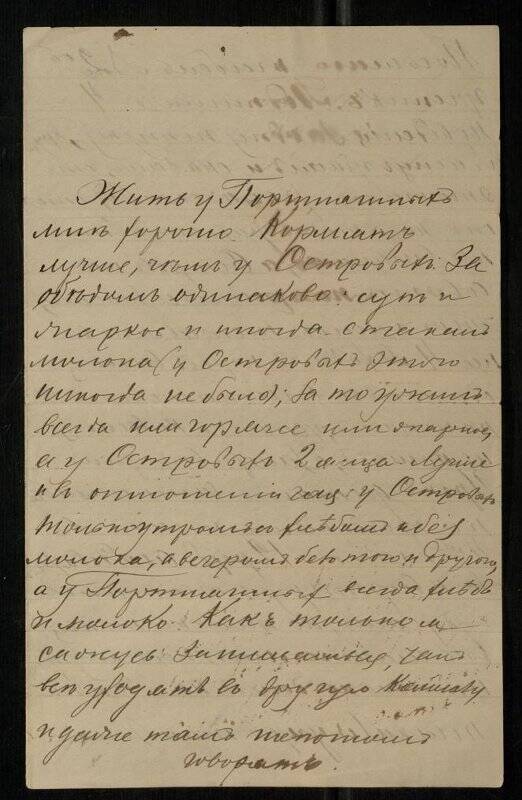 Жить у Портшашныхъ
мнѣ хорошо. Кормятъ
лучше, чѣмъ у Островыхъ. За
обѣдомъ одинаково: супъ и
жаркое и иногда стаканъ
молока (у Островыхъ этого
никогда не было); за то ужинъ
всегда или горячее или жаркое,
а у Островыхъ 2 яйца. Лучше
и въ отношеніи чая: у Островыхъ
только утромъ съ хлѣбомъ и без
молока, а вечеромъ безъ того и другого,
а у всегда хлѣбъ
и молоко. Какъ только я
сажусь заниматься,
всѣ уходятъ въ другую комнату
и даже тамъ шепотомъ
говорятъ.